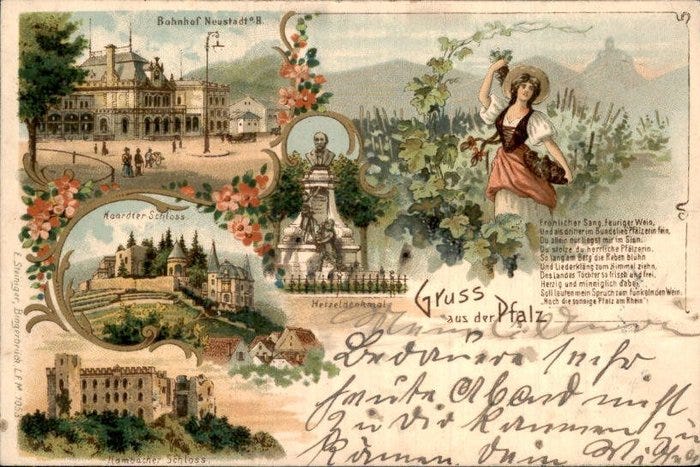 Bahnhof Neustadt a. H.
Haardter Schloss
Hetzeldenkmal
Hambacher Schloss
Fröhlicher Sang, feuriger Wein,
Und als dritter im Bunde lieb Pfälzerin fein,
Du allein nur liegst mir im Sinn,
Du stolze du herrliche Pfälzerin.
So lang am Berg die Reben blühn
Und Liederklang zum Himmel ziehn,
Des Landes Töchter so frisch und frei,
Herzig und minniglich dabei,
Soll lauten mein Spruch zum funkelnden Wein:
"Hoch die sonnige Pfalz am Rhein"!
Gruss
aus der Pfalz
Bedaure sehr
heute Abend nicht
zu die kommen zu
können, dein